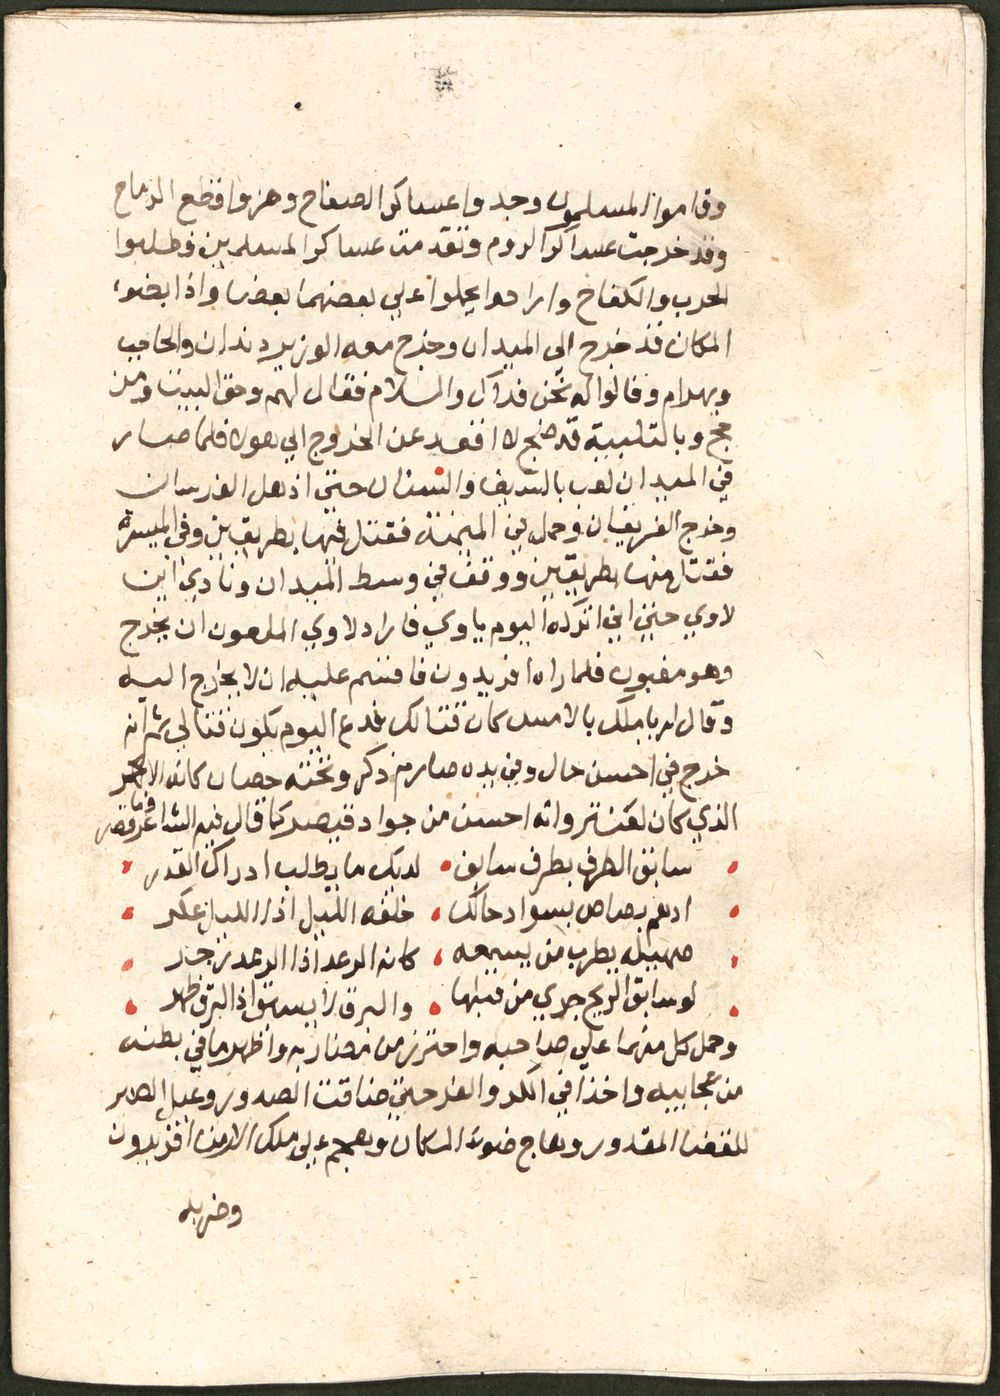 وقاموا المسلمون وجدوا عساكر الصفاح وهزوا قطع الرماح
وقد خرجت عساكر الروم وتقدمت عساكر المسلمين وطلبوا
الحرب والكفاح وارادوا يحملوا علي بعضهما بعضا واذا بضو
المكان قد خرج الي الميدان وخرج معه الوزير دندان والحاجب
وبهرام وقالوا له نحن فداك والسلام فقال لهم وحق البيت ومن
حج وبالتلبيية قد ضج لا اقعد عن الخروج الي هولا فلما صار
في الميدان لعب بالسيف والسنان حتي اذهل الفرسان
وخرج الفريقان وحمل في الميمنة فقتل منها بطريقين وفي الميسرة
فقتل منها بطريقين ووقف في وسط الميدان ونادي اين
لاوي حتي اني اتركه اليوم ياوي فاراد لاوي الملعون ان يخرج
وهو مغبون فلما راه افريدون فاقسم عليه ان لا يخرج اليه
وقال له يا ملك بالامس كان قتالك فدع اليوم يكون قتالي ثم انه
خرج في احسن حال وفي يده صارم ذكر وتحته حصان كانه الابجر
الذي كان لعنتر وانه احسن من جواد قيصر كما قال فيه الشاعر
سابق الطرف بطرف سابق • لديك ما يطلب ادراك القدر
ادهم بصاص بسواد حالك • خلفه الليل اذا الليل عكر
صهيله يطرب من يسمعه • كانه الرعد اذا الرعد زجر
لو سابق الريح جري من قبلها • والبرق لا يسبق اذ البرق ظهر
وحمل كل منهما علي صاحبه واحترز من مضاربه واظهر ما في بطنه
من عجايبه واخذا في الكر والفر حتي ضاقت الصدور وعيل الصبر
للقضا المقدور وهاج ضوء المكان وهجم علي ملك الارمن افريدون
وضربه